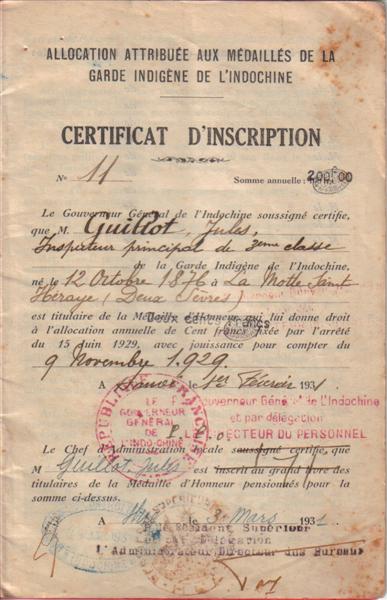 ALLOCATION ATTRIBUÉE AUX MÉDAILLÉS DE LA
GARDE INDIGÈNE DE L'INDOCHINE
CERTIFICAT D'INSCRIPTION
N° 11 Somme annuelle : 200f00
Le Gouverneur Général de l'Indochine soussigné certifie,
que M. Guillot, Jules,
Inspecteur principal de 3ème classe
de la Garde Indigène de l'Indochine,
né le 12 Octobre 1876 à La Motte Saint
Héraye (Deux Sèvres)
est titulaire de la Médaille d'Honneur qui lui donne droit
Deux cents francs
à l'allocation annuelle de Cent francs fixée par l'arrêté
du 15 juin 1929, avec jouissance pour compter du
9 Novembre 1929
A Hanoi, 1er Février 1931
RÉPUBLIQUE FRANÇAISE
LE GOUVERNEUR GÉNÉRAL DE L'INDO-CHINE
Gouverneur Général de l'Indochine
et par délégation
LE DIRECTEUR DU PERSONNEL
Le Chef d'Administration locale soussigné certifie, que
M Guillot Jules est inscrit au grand livre des
titulaires de la Médaille d'Honneur pensionnés pour la
somme ci-dessus.
A le Mars 1931
Résident Supérieur
Délégation
l'Administrateur Directeur des Bureaux